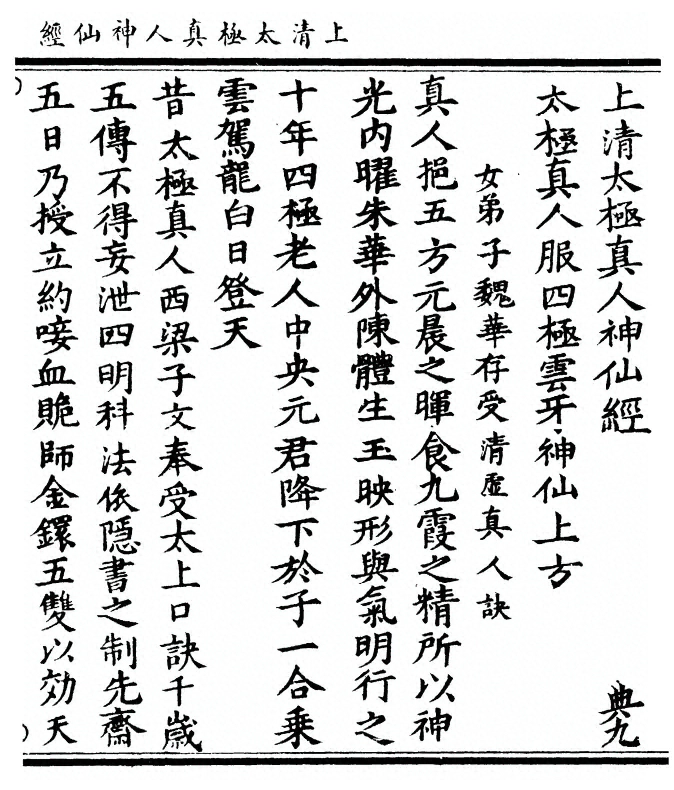 上清太極真人神仙經
上清太極真人神仙經 典九
太極真人服四極雲牙神仙上方
女弟子魏華存受清虛真人訣
真人挹五方元晨之暉食九霞之精所以神
光内曜朱華外陳體生玉映形與氣明行之
十年四極老人中央元君降下於子一合乗
雲駕龍白日登天
昔太極真人西梁子文奉受太上口訣千歲
五傳不得妄泄四明科法依隱書之制先齋
五日乃授立約唼血賝師金鐶五雙以効天